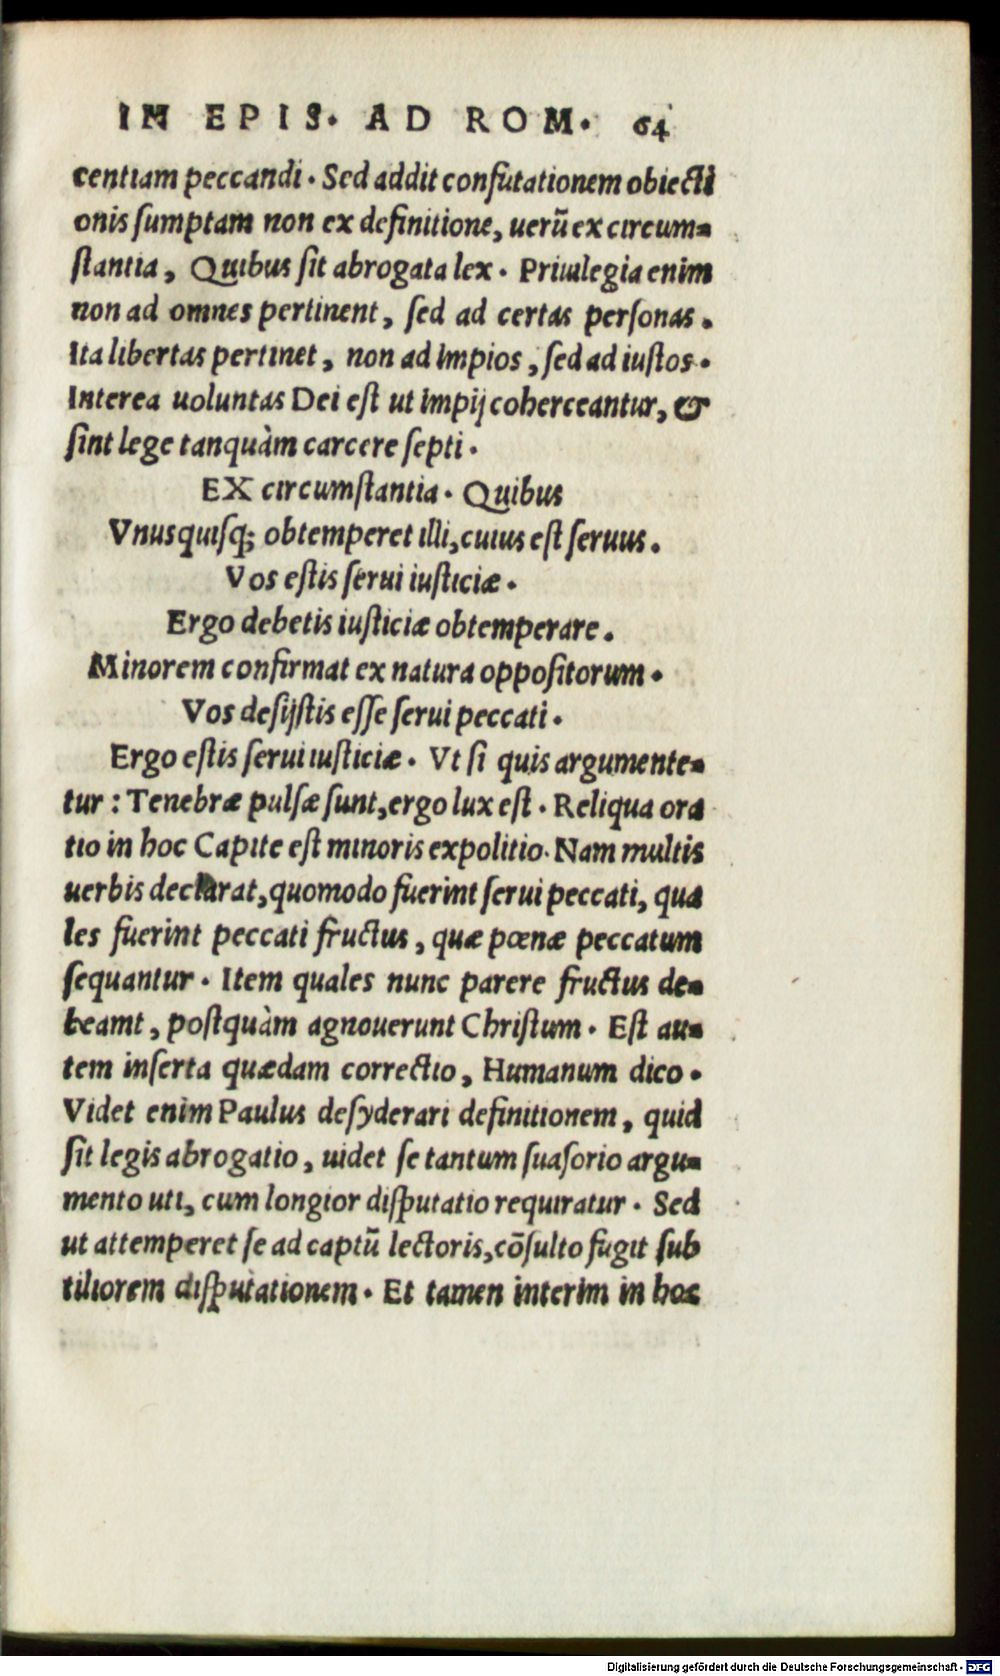 IN EPIS. AD ROM. 64
centiam peccandi. Sed addit confutationem obiecti
onis ſumptam non ex definitione, uerũ ex circum-
ſtantia, Quibus ſit abrogata lex. Priuilegia enim
non ad omnes pertinent, ſed ad certas perſonas.
Ita libertas pertinet, non ad impios, ſed ad iuſtos.
Interea uoluntas Dei eſt ut impij coherceantur, &
ſint lege tanquàm carcere ſepti.
EX circumſtantia. Quibus
Vnusquiſq; obtemperet illi, cuius eſt ſeruus.
Vos eſtis ſerui iuſticiæ.
Ergo debetis iuſticiæ obtemperare.
Minorem confirmat ex natura oppoſitorum.
Vos deſijſtis eſſe ſerui peccati.
Ergo eſtis ſerui iuſticiæ. Vt ſi quis argumente-
tur: Tenebræ pulſæ ſunt, ergo lux eſt. Reliqua ora
tio in hoc Capite eſt minoris expolitio. Nam multis
uerbis declarat, quomodo fuerint ſerui peccati, qua
les fuerint peccati fructus, quæ pœnæ peccatum
ſequantur. Item quales nunc parere fructus de-
beamt, poſtquàm agnouerunt Chriſtum. Eſt au-
tem inſerta quædam correctio, Humanum dico.
Videt enim Paulus deſyderari definitionem, quid
ſit legis abrogatio, uidet ſe tantum ſuaſorio argu-
mento uti, cum longior diſputatio requiratur. Sed
ut attemperet ſe ad captũ lectoris, cõſulto fugit ſub
tiliorem diſputationem. Et tamen interim in hoc
Digitalisierung gefördert durch die Deutsche Forschungsgemeinschaft - DFG